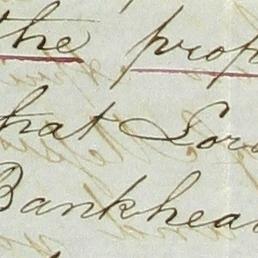 the prop
that Lord
Bankhea